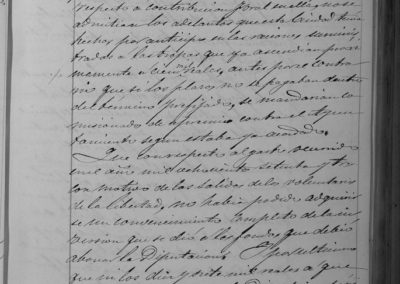 respecto a contribucion foral
admitian los adelantos que esta Ciudad tenia
hechos por anticipo en las raciones suminis
tradas a las tropas que ya ascendian
mente a cien mil reales, antes por el contra
rio que si los plazos no se pagaban dentro
del término prefijado, se mandarian co
misionado de apremio contra el Ayun
tamiento segun estaba ya acordado.
Que con respecto al gasto ocurrido
en el año mil ochocientos setenta y
con motivo de las salidas de los voluntarios
de la libertad, no habia podido adquirir
se un convencimiento completo de la in
version que se dió a los fondos que debió
abonar la Diputacion. Y por ultimo
que ni los diez y siete mil reales a que